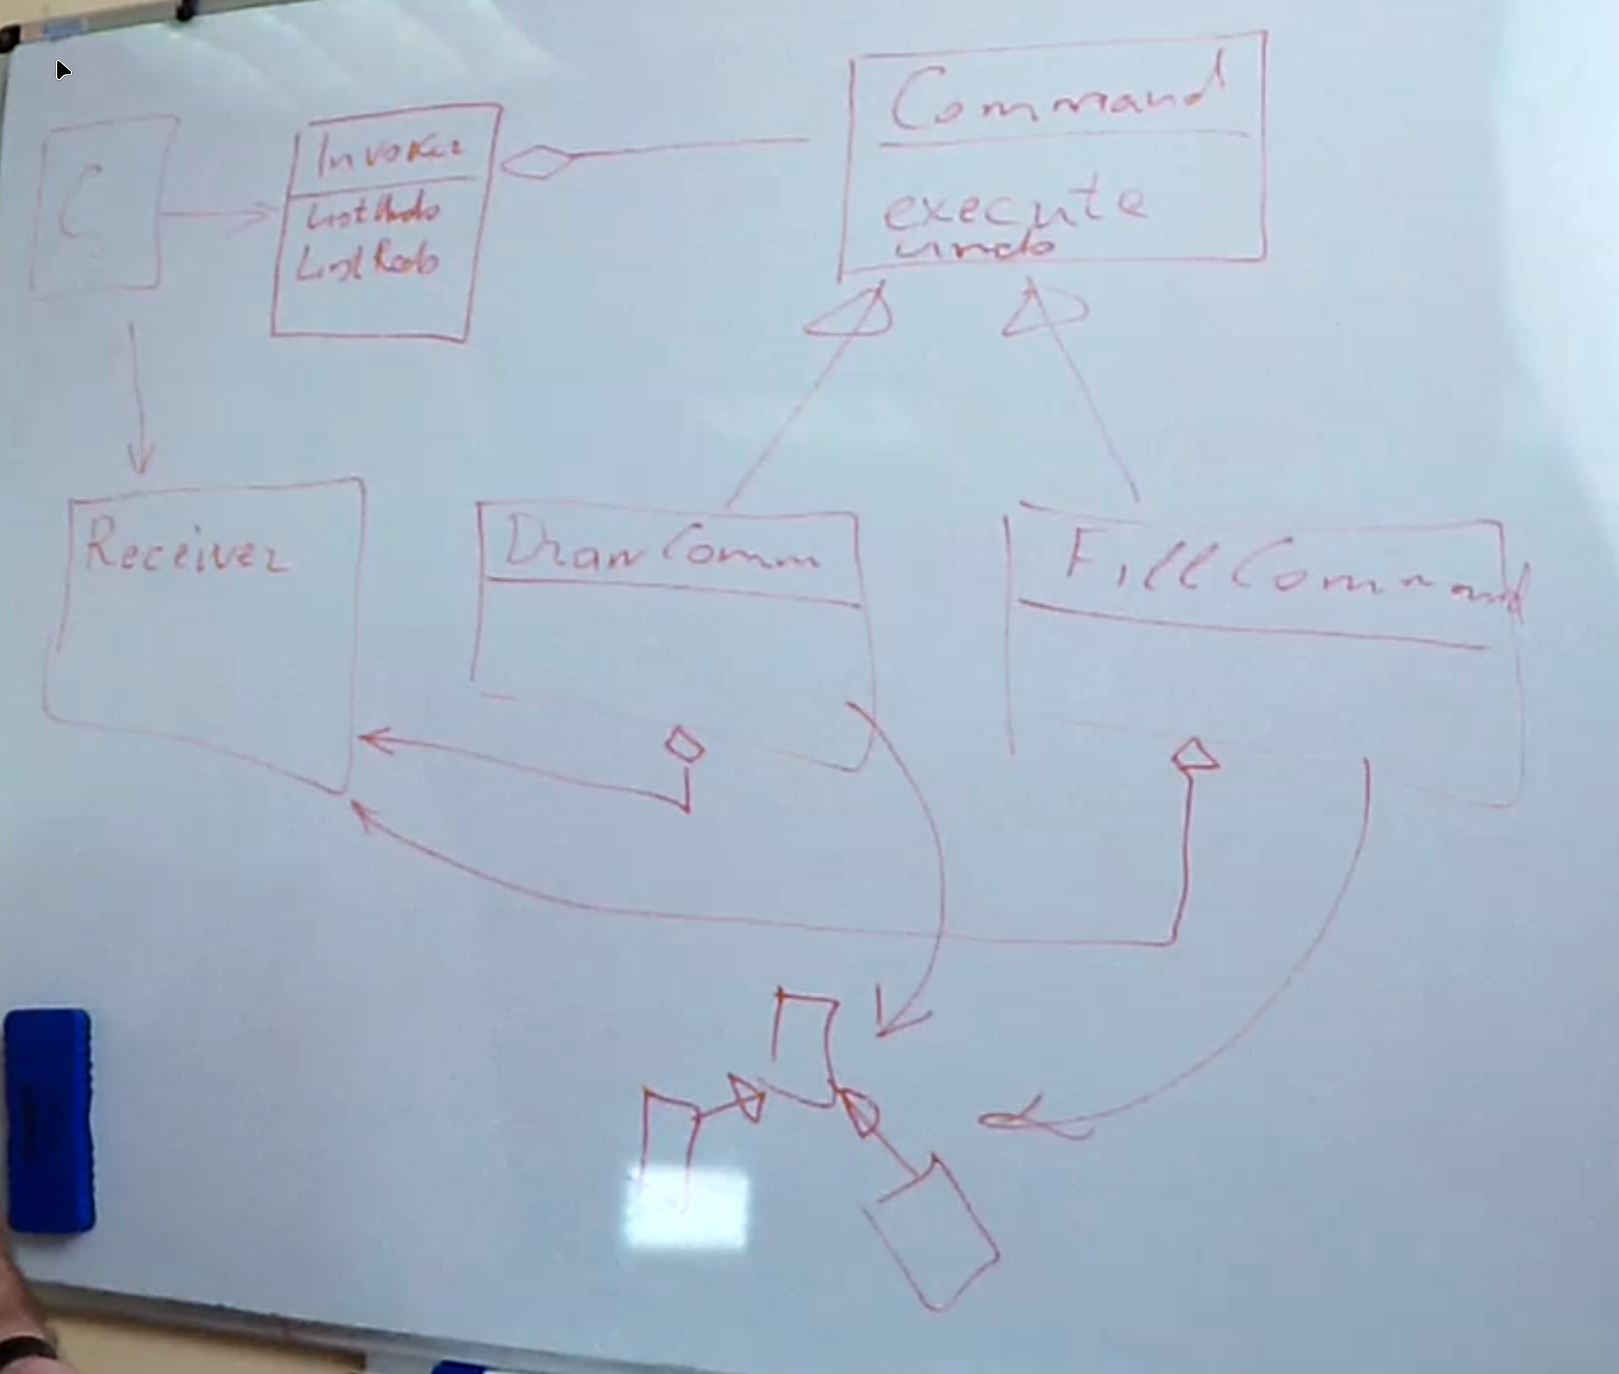 C
Invoker
List Undo
List Redo
Command
execute
undo
Receiver
Draw Comm
Fill Command